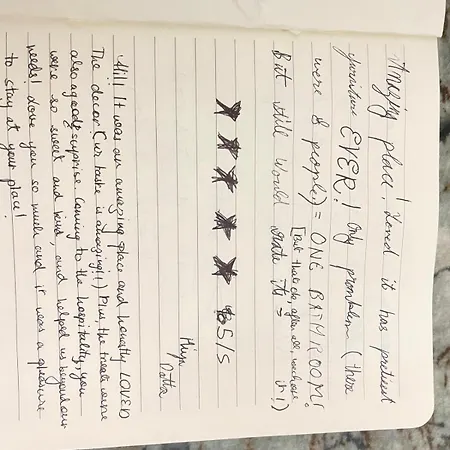 Amazing place! Loved it has pretiest
furniture EVER! Only promblem (there
were 8 people) = ONE BATHROOM!
[But that's ok, after all, we chose it!)
But still would rate it =
★★★★★ 5/5
Datta
Hii! It was an amazing place and honestly LOVED
The decor. (ur taste is amazing!!) Plus, the treats were
also a good surprise. Coming to the hospitality, you
were so sweet and kind, and helped us beyond our
needs! Love you so much and it was a pleasure
to stay at your place!